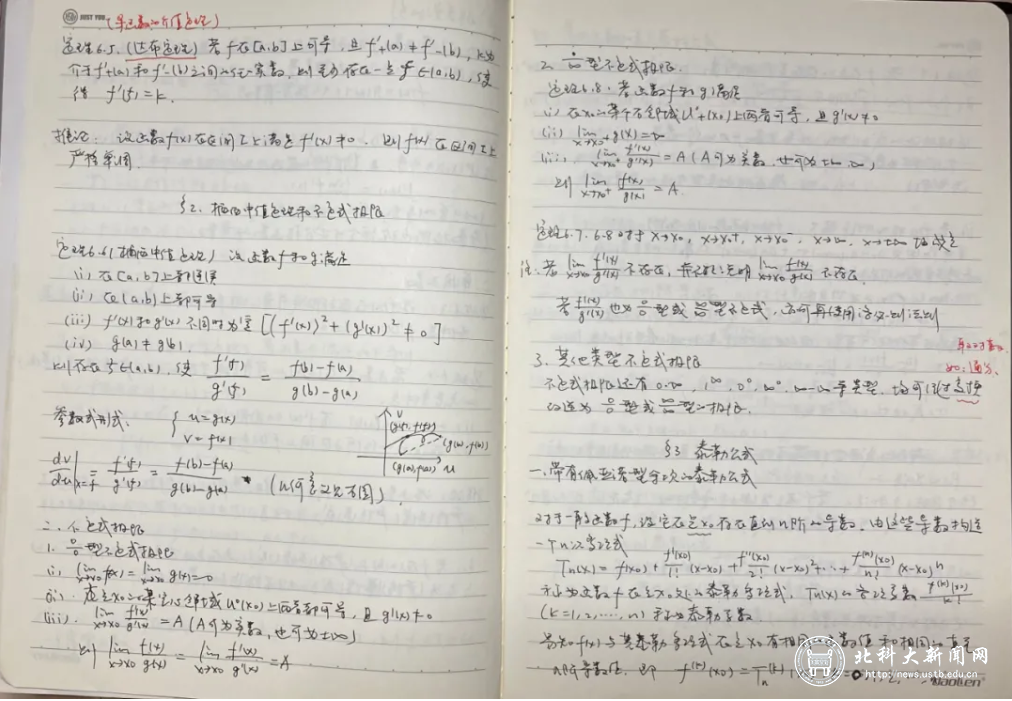 JUST YOU
(导函数的介值定理)
定理6.5 (达布定理) 若f在[a,b]上可导,且f'+(a)≠f'-(b),k为
介于f'+(a)和f'-(b)之间的任一实数,则至少存在一点ξ∈(a,b),使
得 f'(ξ)=k.
推论: 设函数f(x)在区间I上满足f'(x)≠0. 则f(x)在区间I上
严格单调.
§2. 柯西中值定理和不定式极限
定理6.6(柯西中值定理) 设函数f和g满足
(i) 在[a,b]上都连续
(ii) 在(a,b)上都可导
(iii) f'(x)和g'(x)不同时为零 [(f'(x))²+(g'(x))²≠0]
(iv) g(a)≠g(b).
则存在ξ∈(a,b), 使 f'(ξ)/g'(ξ) = (f(b)-f(a))/(g(b)-g(a))
参数式形式: { u=g(x) v=f(x)
dv/du|x=ξ = f'(ξ)/g'(ξ) = (f(b)-f(a))/(g(b)-g(a))
二、不定式极限
1. 0/0型不定式极限
(i) lim x→x0 f(x)=lim x→x0 g(x)=0
(ii). 在点x0的某空心邻域U°(x0)上两者都可导,且g'(x)≠0
(iii). lim x→x0 f'(x)/g'(x)=A (A可为实数,也可为±∞)
则 lim x→x0 f(x)/g(x) = lim x→x0 f'(x)/g'(x) = A
2. ∞/∞型不定式极限.
定理6.8. 若函数f和g满足
(i) 在x0的某个右邻域U°+(x0)上两者可导,且g'(x)≠0
(ii) lim x→x0+ g(x)=∞
(iii) lim x→x0+ f'(x)/g'(x)=A (A可为实数,也可为±∞,∞)
则 lim x→x0+ f(x)/g(x)=A.
定理6.7. 6.8对于x→x0, x→x0+, x→x0-, x→∞, x→±∞均成立
注: 若 lim x→x0 f'(x)/g'(x) 不存在,并不能说明 lim x→x0 f(x)/g(x) 不存在
若 f'(x)/g'(x) 也为0/0型或∞/∞型不定式,亦可再使用洛必达法则
3. 其他类型不定式极限
如:通分、
不定式极限还有0·∞, 1^∞, 0^0, ∞^0, ∞-∞等类型. 均可经过变换
改造为0/0型或∞/∞型的极限.
§3 泰勒公式
一、带有佩亚诺型余项的泰勒公式
对于一般函数f,设它在点x0存在直到n阶的导数,由这些导数构造
一个n次多项式
Tn(x)=f(x0)+f'(x0)/1!(x-x0)+f''(x0)/2!(x-x0)²+…+f^(n)(x0)/n!(x-x0)^n
称为函数f在点x0处的泰勒多项式, Tn(x)的各项系数 f^(k)(x0)/k!
(k=1,2,…,n) 称为泰勒系数
易知f(x)与其泰勒多项式在点x0有相同的函数值和相同的直至
n阶导数值, 即 f^(k)(x0)=Tn^(k)
北科大新闻网
http://news.ustb.edu.cn